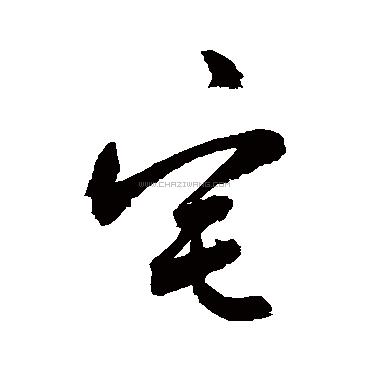 宅
WWW.CHAZIWANG.COM